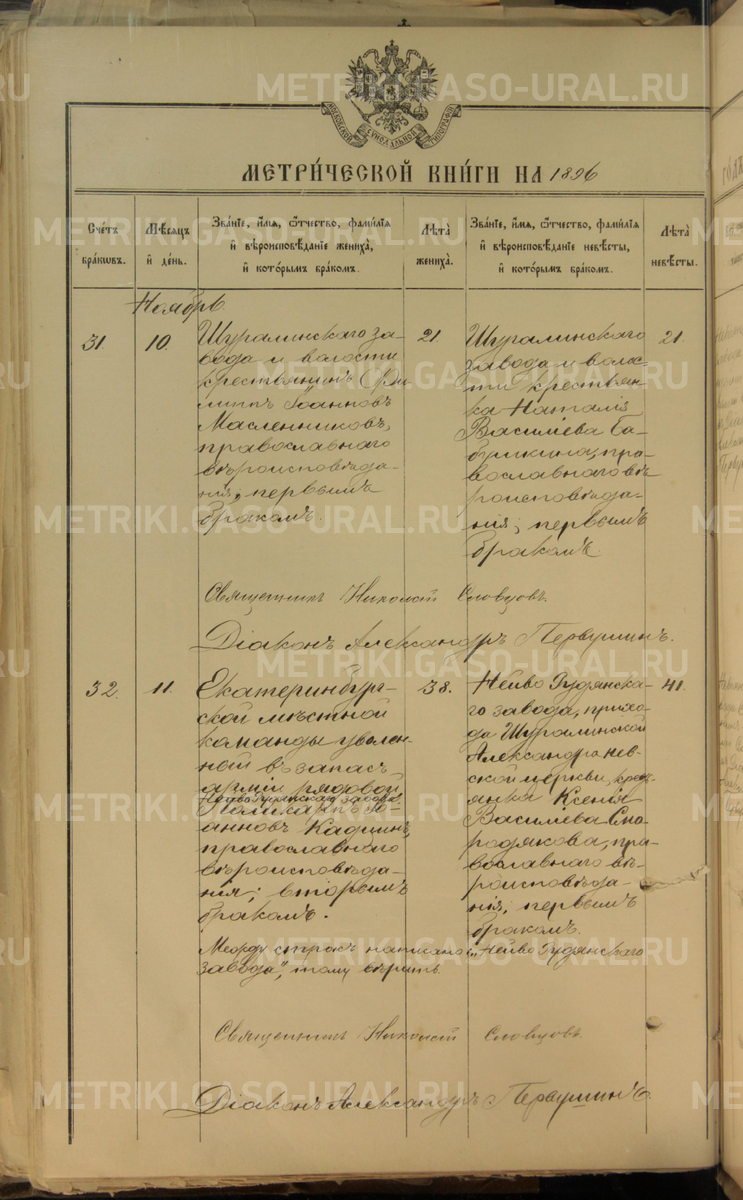 МОСКОВСКОЙ СѴНОДАЛЬНОЙ ТИПОГРАФІИ
МЕТРИ́ЧЕСКОЙ КНИ́ГИ НА 1896
Сче́тъ бра́кωвъ.
Мѣ́сяцъ и҆ де́нь.
Зва́нїе, и҆́мѧ, ѻ҆́тчество, фамилїѧ
и҆ вѣроисповѣ́данїе жениха̀,
и҆ кото́рымъ бра́комъ.
Лѣта̀ жениха̀.
Зва́нїе, и҆́мѧ, ѻ҆́тчество, фамилїѧ
и҆ вѣроисповѣ́данїе невѣ́сты,
и҆ кото́рымъ бра́комъ.
Лѣта̀ невѣ́сты.
Ноябрь
31.
10.
Шуралинскаго за-
вода и волости
крестьянинъ Фи-
липпъ Іоанновъ
Масленниковъ,
православнаго
вѣроисповѣда-
нія, первымъ
бракомъ.
21.
Шуралинскаго
завода и волос-
ти крестьян-
ка Наталія
Васильева Ба-
бушкина, пра-
вославнаго вѣ-
роисповѣда-
нія, первымъ
бракомъ.
21.
Священникъ Николай Словцовъ.
Діаконъ Александръ Первушинъ.
32.
11.
Екатеринбург-
ской мѣстной
команды уволен-
ный въ запасъ
арміи рядовой
Нейво Рудянскаго завода
Поликарпъ Іо-
анновъ Кадцинъ,
православнаго
вѣроисповѣда-
нія; вторымъ
бракомъ.
38.
Нейво Рудянска-
го завода, прихо-
да Шуралинской
Александроневс-
кой церкви, крест-
янка Ксенія
Васильева Смо-
родякова, пра-
вославнаго вѣ-
роисповѣда-
нія, первымъ
бракомъ.
41.
Между строкъ написано: „Нейво Рудянскаго
завода", тому вѣрить.
Священникъ Николай Словцовъ.
Діаконъ Александръ Первушинъ.
METRIKI.GASO-URAL.RU